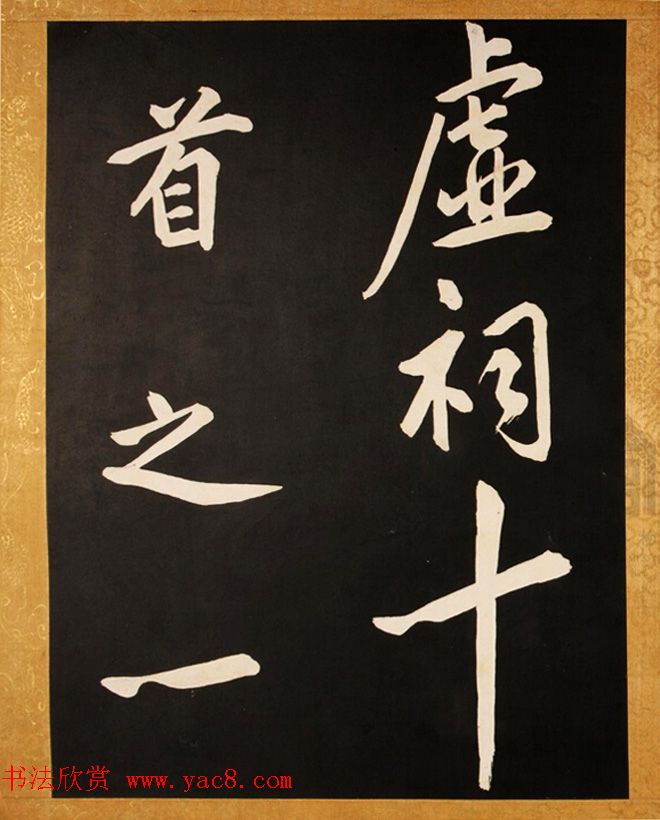 虚祠十
首之一
书法欣赏 www.yac8.com